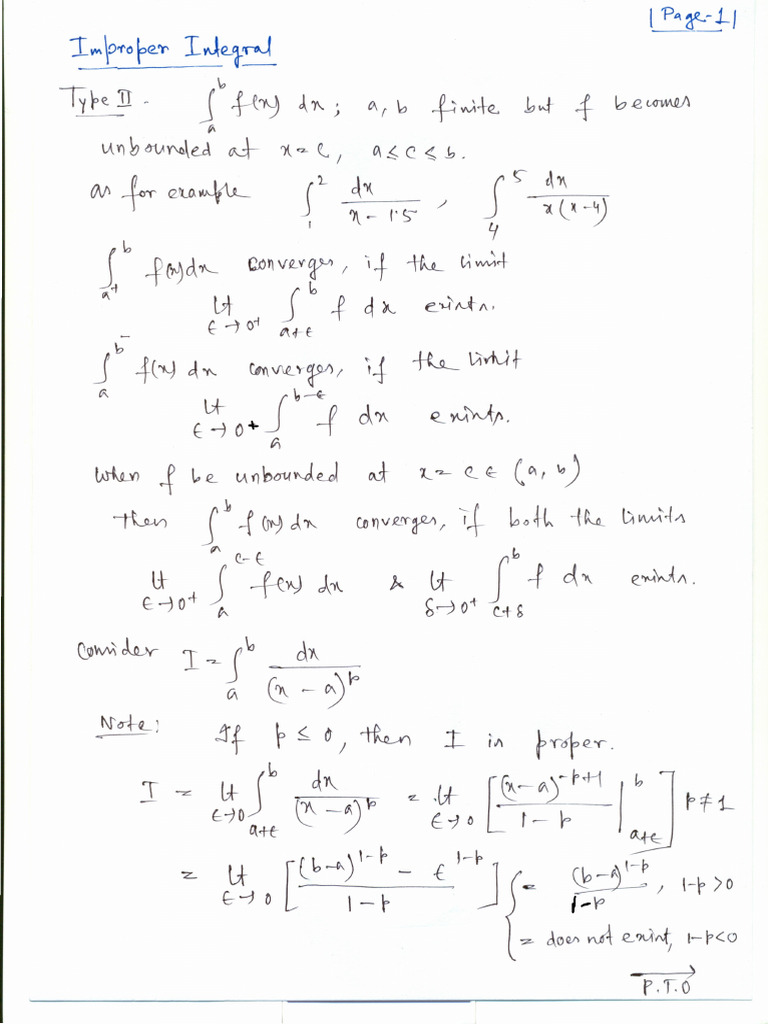 |Page-1|
Improper Integral
Type II - ∫_a^b f(x) dx; a, b finite but f becomes
unbounded at x = c, a ≤ c ≤ b.
as for example ∫_1^2 dx/(x - 1.5) , ∫_4^5 dx/(x(x-4))
∫_{a+}^b f(x)dx converges, if the limit
Lt_{ε→0+} ∫_{a+ε}^b f dx exists.
∫_a^{b-} f(x) dx converges, if the limit
Lt_{ε→0+} ∫_a^{b-ε} f dx exists.
When f be unbounded at x = c ∈ (a, b)
then ∫_a^b f(x) dx converges, if both the limits
Lt_{ε→0+} ∫_a^{c-ε} f(x) dx & Lt_{δ→0+} ∫_{c+δ}^b f dx exists.
Consider I = ∫_a^b dx/(x - a)^p
Note: If p ≤ 0, then I is proper.
I = Lt_{ε→0} ∫_{a+ε}^b dx/(x - a)^p = Lt_{ε→0} [ (x-a)^{-p+1}/(1-p) |_{a+ε}^b ] p ≠ 1
= Lt_{ε→0} [ ((b-a)^{1-p} - ε^{1-p})/(1-p) ] { = (b-a)^{1-p}/(1-p), 1-p>0
= does not exist, 1-p<0
P.T.O